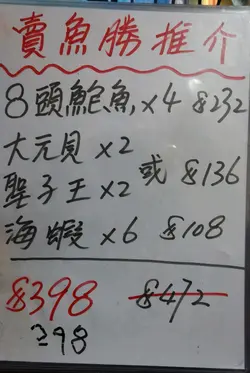 賣魚勝推介
8頭鮑魚 x4 $232
大元貝 x2
或 $136
聖子王 x2
海蝦 x6 $108
$398 $472
298